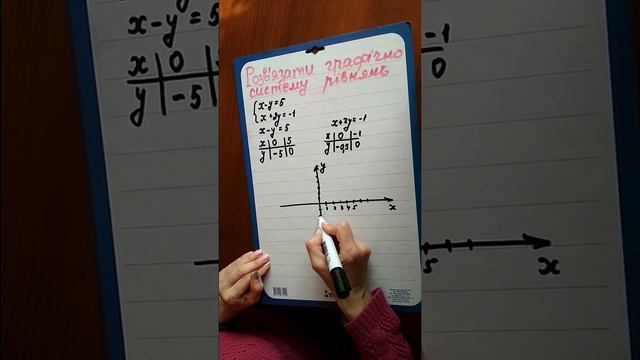 Розв'язати графічно
систему рівнянь
x-y=5
x+2y=-1
x-y=5
x 0 5
y -5 0
x+2y=-1
x 0 -1
y -0,5 0
y
1 2 3 4 5
x